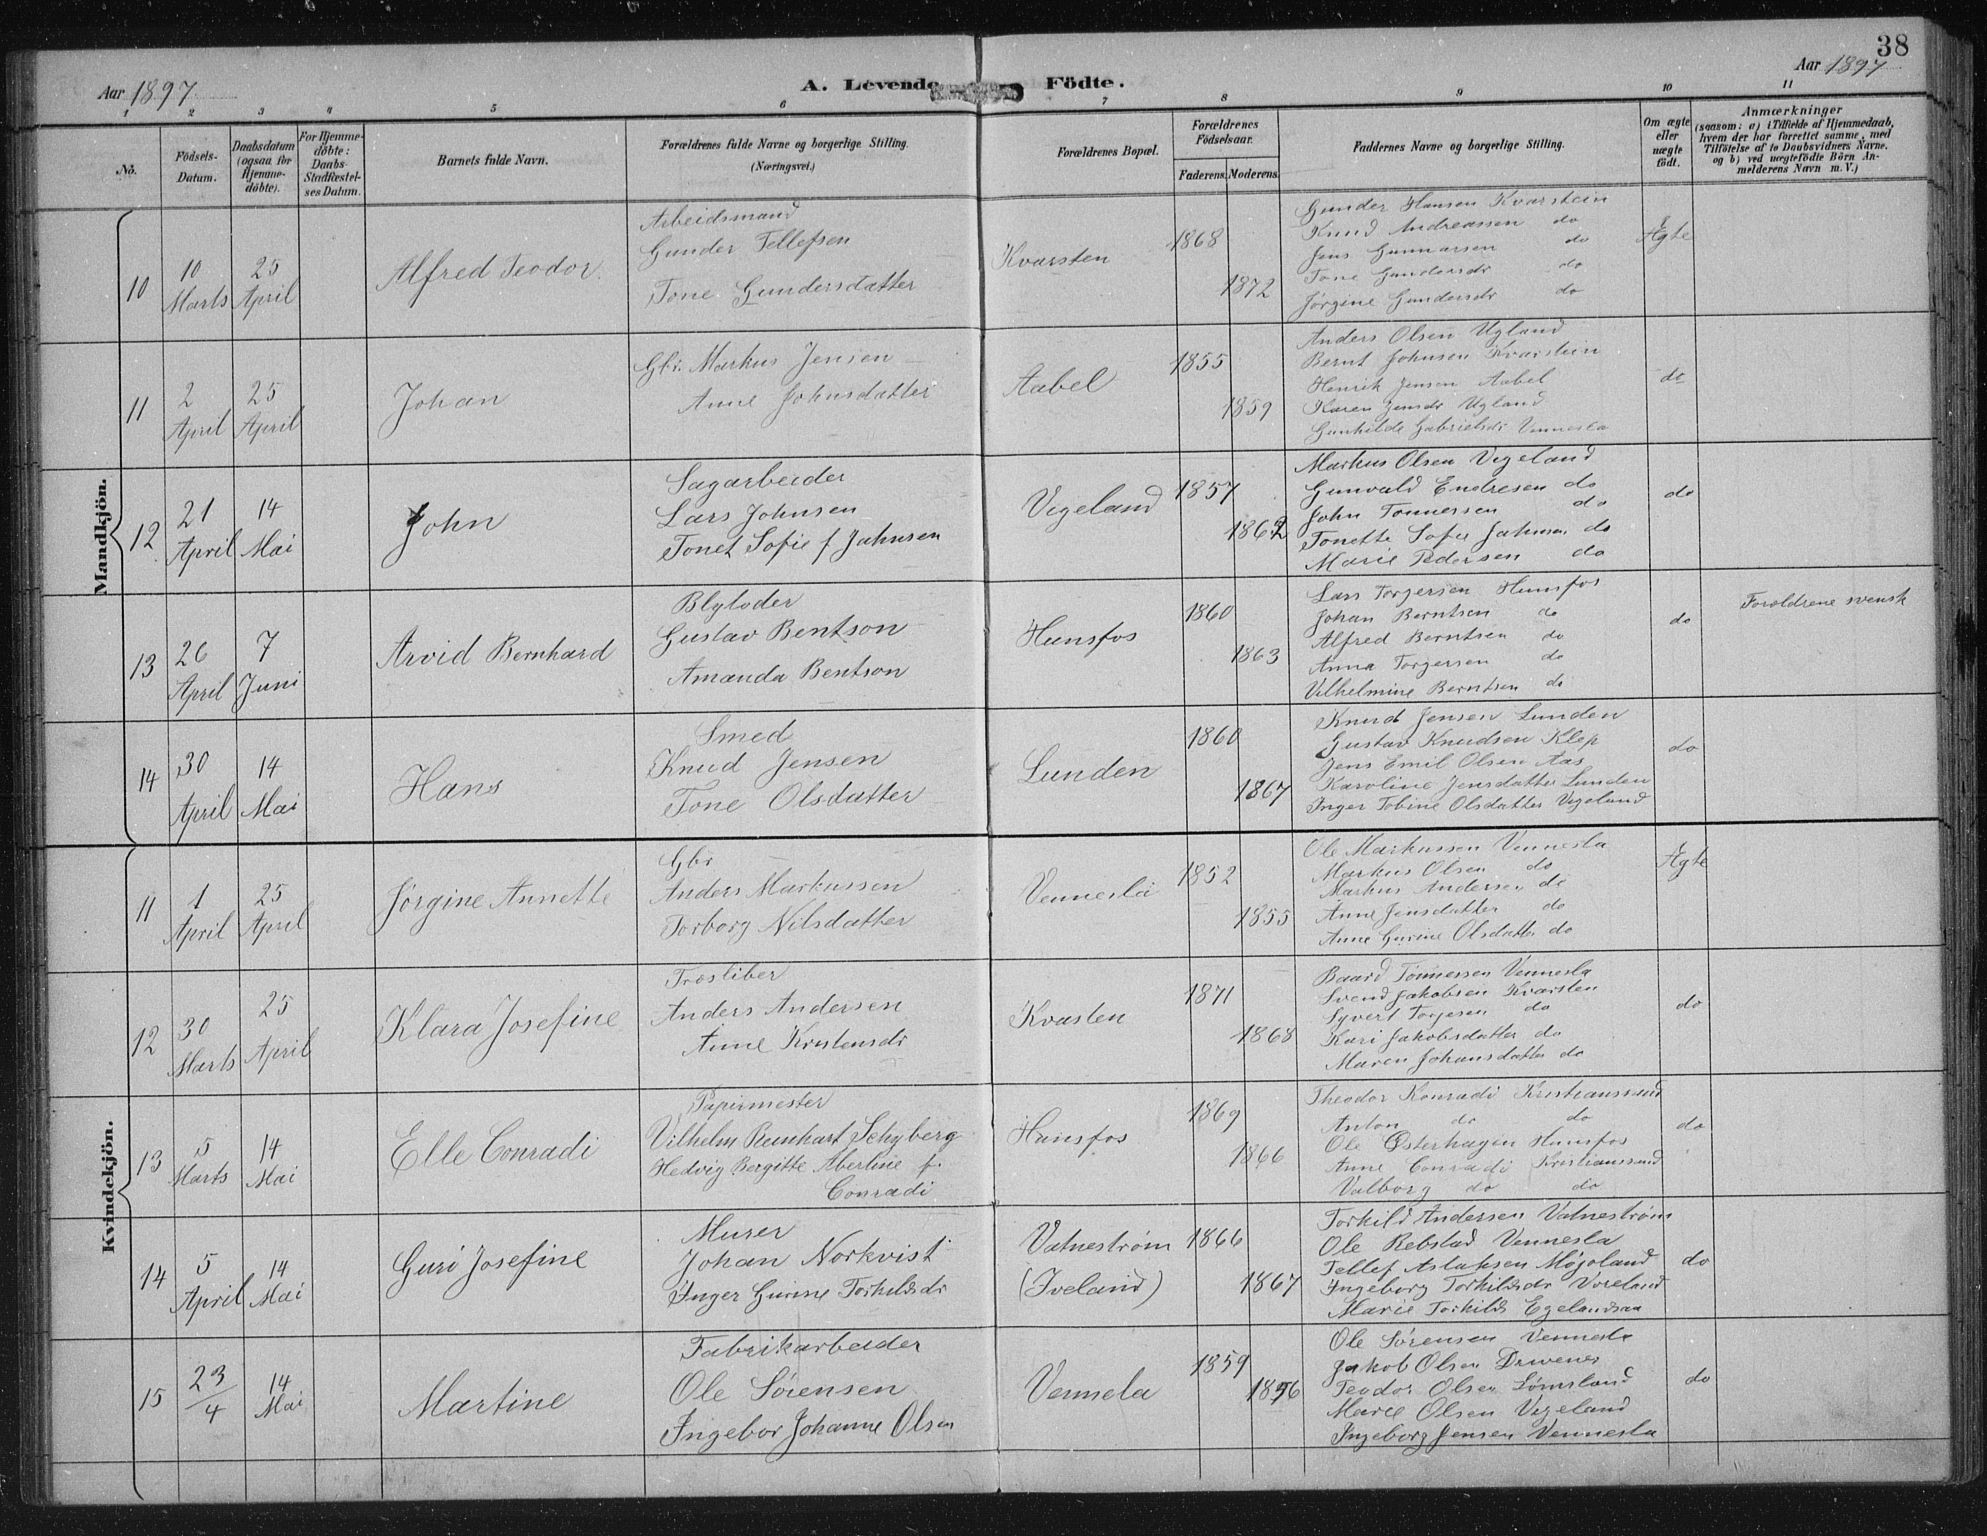 38
Aar 1897
A. Levende Födte.
Aar 1897
1 2 3 4 5 6 7 8 9 10 11
No.
Födsels-Datum.
Daabsdatum (ogsaa for Hjemme-döbte).
For Hjemme-döbte: Daabs-Stadfæstel-ses Datum.
Barnets fulde Navn.
Forældrenes fulde Navne og borgerlige Stilling.
(Næringsvei.)
Forældrenes Bopæl.
Forældrenes Födselsaar.
Faderens. Moderens.
Faddernes Navne og borgerlige Stilling.
Om ægte eller uægte födt.
Anmærkninger
(saasom: a) i Tilfælde af Hjemmedaab,
hvem der har forrettet samme, med
Tilföielse af to Daabsvidners Navne.
og b) ved uægtefödte Börn An-
melderens Navn m. V.)
Mandkjön.
10
10 Marts
25 April
Alfred Teodor.
Arbeidsmand
Gunder Tellefsen
Tone Gundersdatter
Kvarsten
1868
1872
Gunder Hansen Kvarstein
Knud Andreassen do
Jens Gunnarsen do
Tone Gundersdr do
Jørgine Gundersdr do
Ægte
11
2 April
25 April
Johan
Gbr. Markus Jensen
Anne Johnsdatter
Aabel
1855
1859
Anders Olsen Ugland
Bernt Johnsen Kvarstein
Henrik Jensen Aabel
Karen Jensdr Ugland
Gunhilde Gabrielsdr Vennesla
do
12
21 April
14 Mai
John
Sagarbeider
Lars Johnsen
Tonet Sofie f Jahnsen
Vigeland
1857
1862
Markus Olsen Vigeland
Gunvald Endresen do
John Tønnersen do
Tonette Sofie Jahnsen do
Marie Pedersen do
do
13
26 April
7 Juni
Arvid Bernhard
Blyloder
Gustav Bentson
Amanda Bentson
Hunsfos
1860
1863
Lars Torgersen Hunsfos
Johan Berntsen do
Alfred Berntsen do
Anna Torgersen do
Vilhelmine Berntsen do
do
Foroldrene svensk
14
30 April
14 Mai
Hans
Smed
Knud Jensen
Tone Olsdatter
Lunden
1860
1867
Knud Jensen Lunden
Gustav Knudsen Klep
Jens Emil Olsen Aas
Karoline Jensdatter Lunden
Inger Tobine Olsdatter Vigeland
do
Kvindekjön.
11
1 April
25 April
Jørgine Annette
Gbr
Anders Markussen
Torborg Nilsdatter
Vennesla
1852
1855
Ole Markussen Vennesla
Markus Olsen do
Markus Andersen do
Anne Jensdatter do
Anne Gurine Olsdatter do
Ægte
12
30 Marts
25 April
Klara Josefine
Trosliber
Anders Andersen
Anne Kristensdr
Kvasten
1871
1868
Baard Tønnessen Vennesla
Svend Jakobsen Kvarsten
Syvert Torjesen do
Kari Jakobsdatter do
Maren Johansdatter do
do
13
5 Marts
14 Mai
Elle Conradi
Papirmester
Vilhelm Reinhart Schyberg
Hedvig Bergitte Abertine f.
Conradi
Hunsfos
1869
1866
Theodor Konradi Kristianssand
Anton do do
Ole Østerhagen Hunsfos
Anne Conradi Kristianssand
Valborg do do
do
14
5 April
14 Mai
Guri Josefine
Murer
Johan Norkvist
Inger Gurine Torkildsdr
Vatnestrøm
(Iveland)
1866
1867
Torkild Andersen Vatnestrøm
Ole Rebstad Vennesla
Tellef Aslaksen Møjoland
Ingeborg Torkildsdr Voreland
Marie Torkilds Egelandsaa
do
15
23/4
14 Mai
Martine
Fabrikarbeider
Ole Sørensen
Ingebor Johanne Olsen
Vennela
1859
1856
Ole Sørensen Vennesla
Jakob Olsen Drivenes
Teodor Olsen Lømsland
Marie Olsen Vigeland
Ingeborg Jensen Vennesla
do